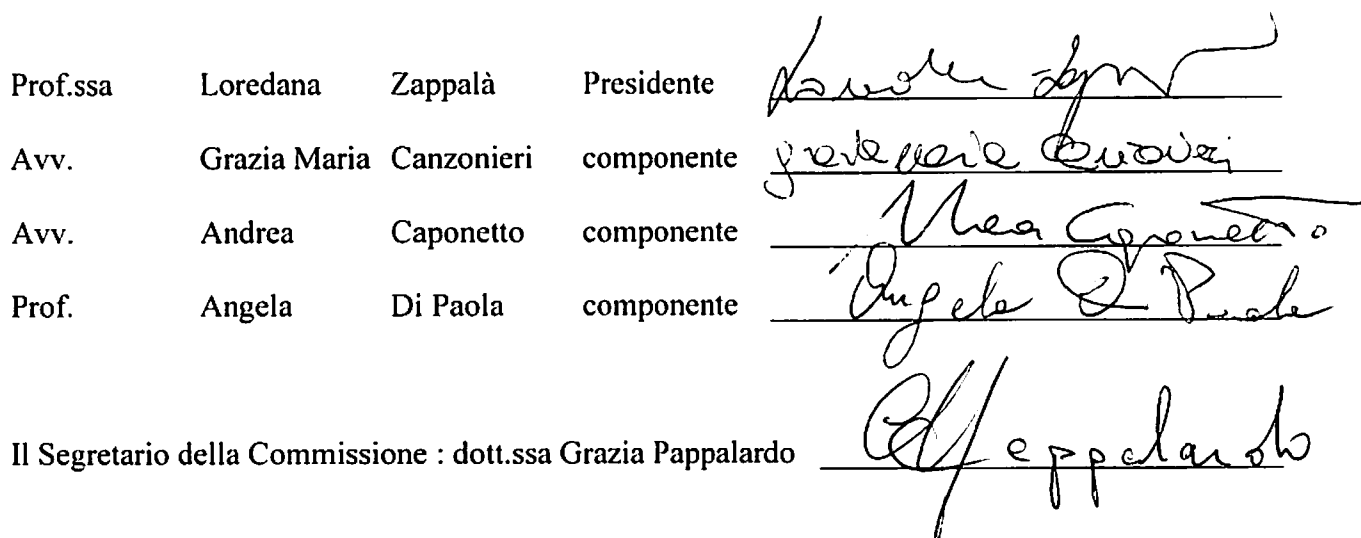 Prof.ssa Loredana Zappalà Presidente
Avv. Grazia Maria Canzonieri componente
Avv. Andrea Caponetto componente
Prof. Angela Di Paola componente Angela Di Paola
Il Segretario della Commissione : dott.ssa Grazia Pappalardo